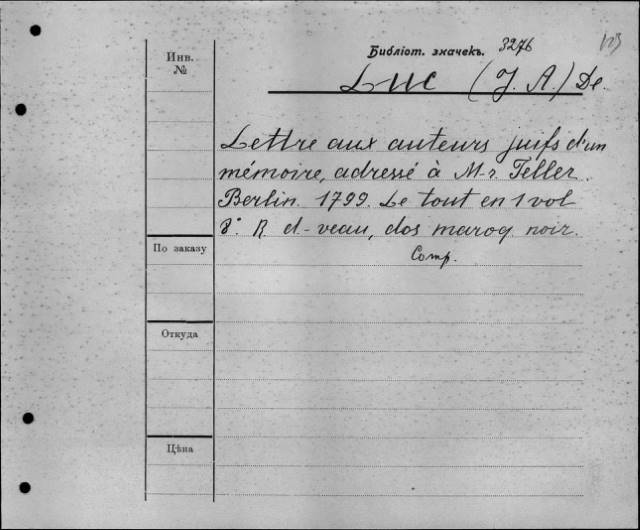 Инв. №
Библіот. значекъ. 3276
Luc (J. A.) De.
Lettre aux auteurs juifs d'un
mémoire, adressé à M-r Teller.
Berlin. 1799. Le tout en 1 vol
8°. R. d-veau, dos maroq. noir.
Comp.
По заказу
Откуда
Цѣна